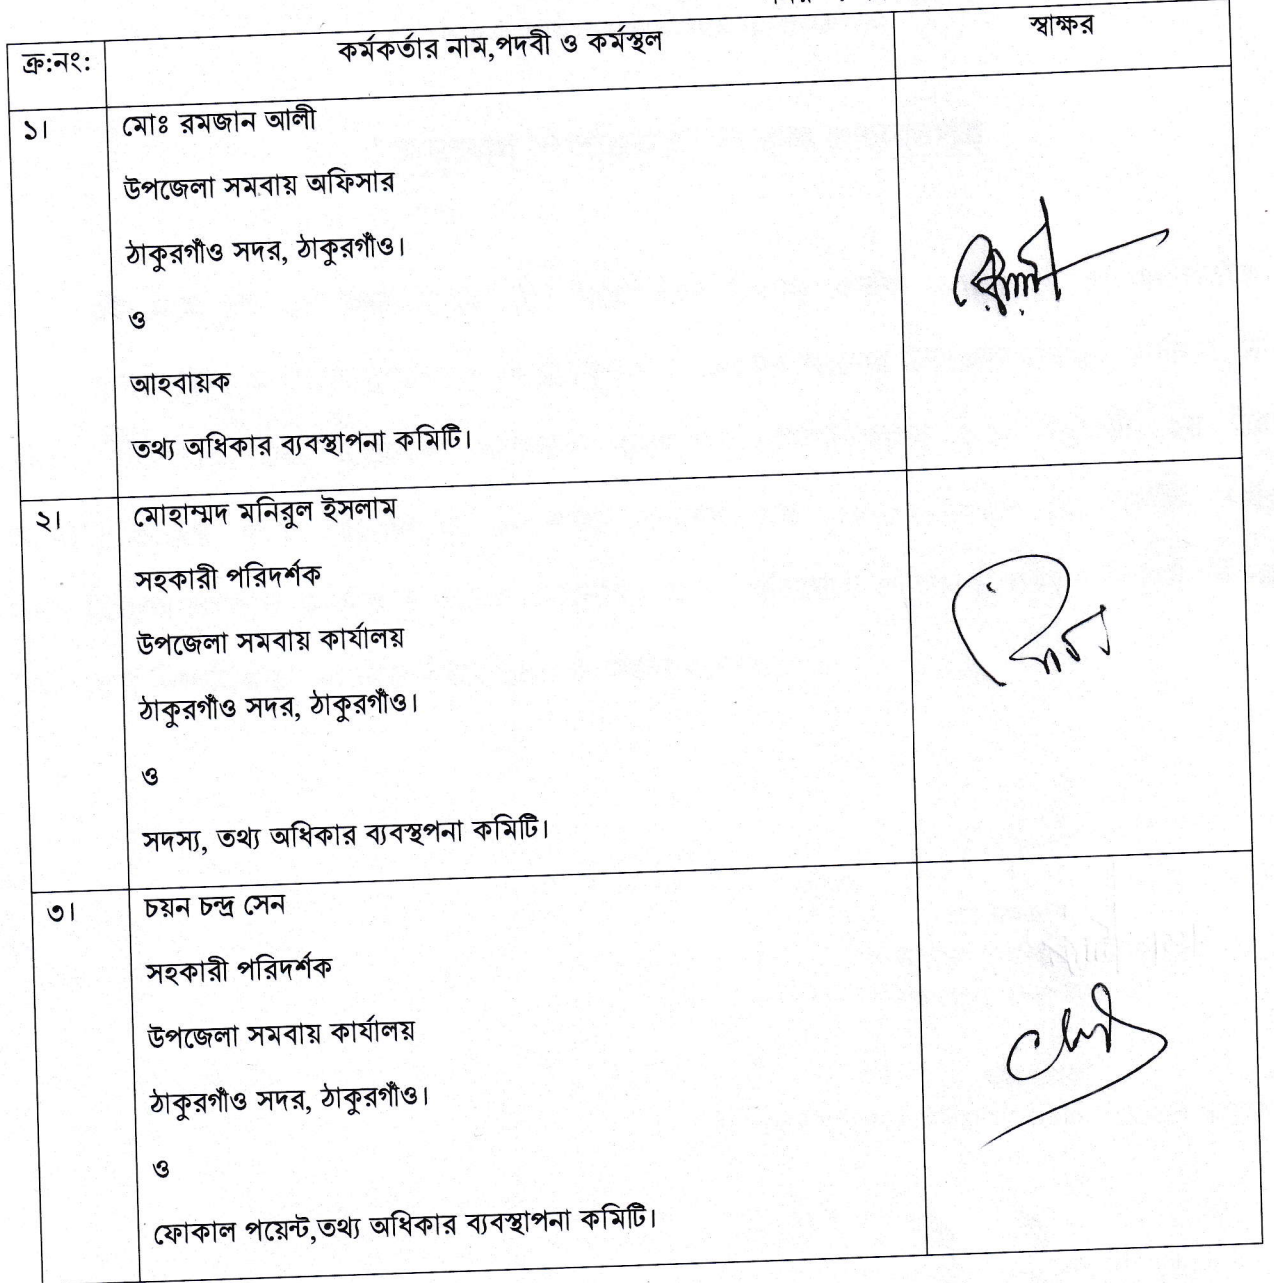 ক্র:নং:
কর্মকর্তার নাম,পদবী ও কর্মস্থল
স্বাক্ষর
১।
মোঃ রমজান আলী
উপজেলা সমবায় অফিসার
ঠাকুরগাঁও সদর, ঠাকুরগাঁও।
ও
আহবায়ক
তথ্য অধিকার ব্যবস্থাপনা কমিটি।
২।
মোহাম্মদ মনিরুল ইসলাম
সহকারী পরিদর্শক
উপজেলা সমবায় কার্যালয়
ঠাকুরগাঁও সদর, ঠাকুরগাঁও।
ও
সদস্য, তথ্য অধিকার ব্যবস্থপনা কমিটি।
৩।
চয়ন চন্দ্র সেন
সহকারী পরিদর্শক
উপজেলা সমবায় কার্যালয়
ঠাকুরগাঁও সদর, ঠাকুরগাঁও।
ও
ফোকাল পয়েন্ট,তথ্য অধিকার ব্যবস্থাপনা কমিটি।